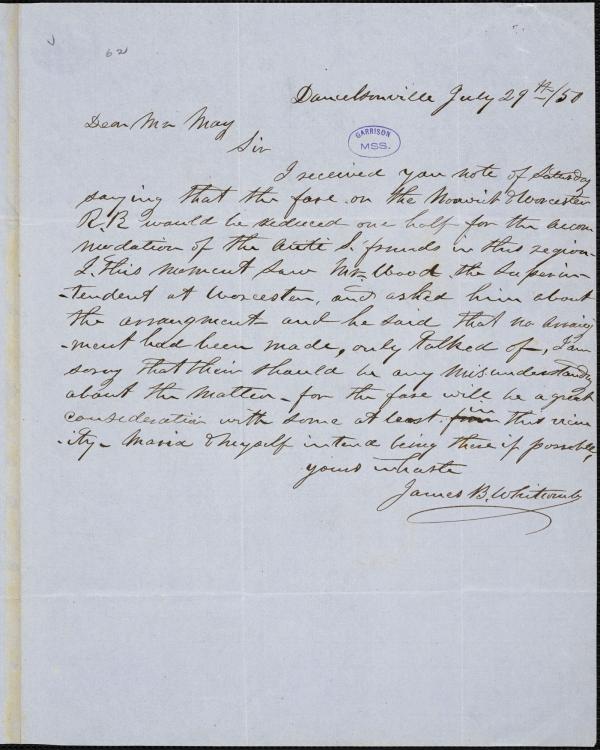 62
Danielsonville July 29th/50
Dear Mr May
GARRISON
MSS.
Sir
I received your note of Saturday
saying that the fare on the Norwich & Worcester
R.R would be reduced one half for the accom
modation of the Anti S. friends in this region
I this moment saw Mr. Wood, the Superin-
-tendent at Worcester, and asked him about
the arrangment and he said that no arrang
-ment had been made, only talked of, I am
sorry that their should be any misunderstanding
about the matter - for the fare will be a great
consideration with some at least from in this vicin
-ity - Maria & myself intend being there if possible,
yours in haste
James B. Whitcomb